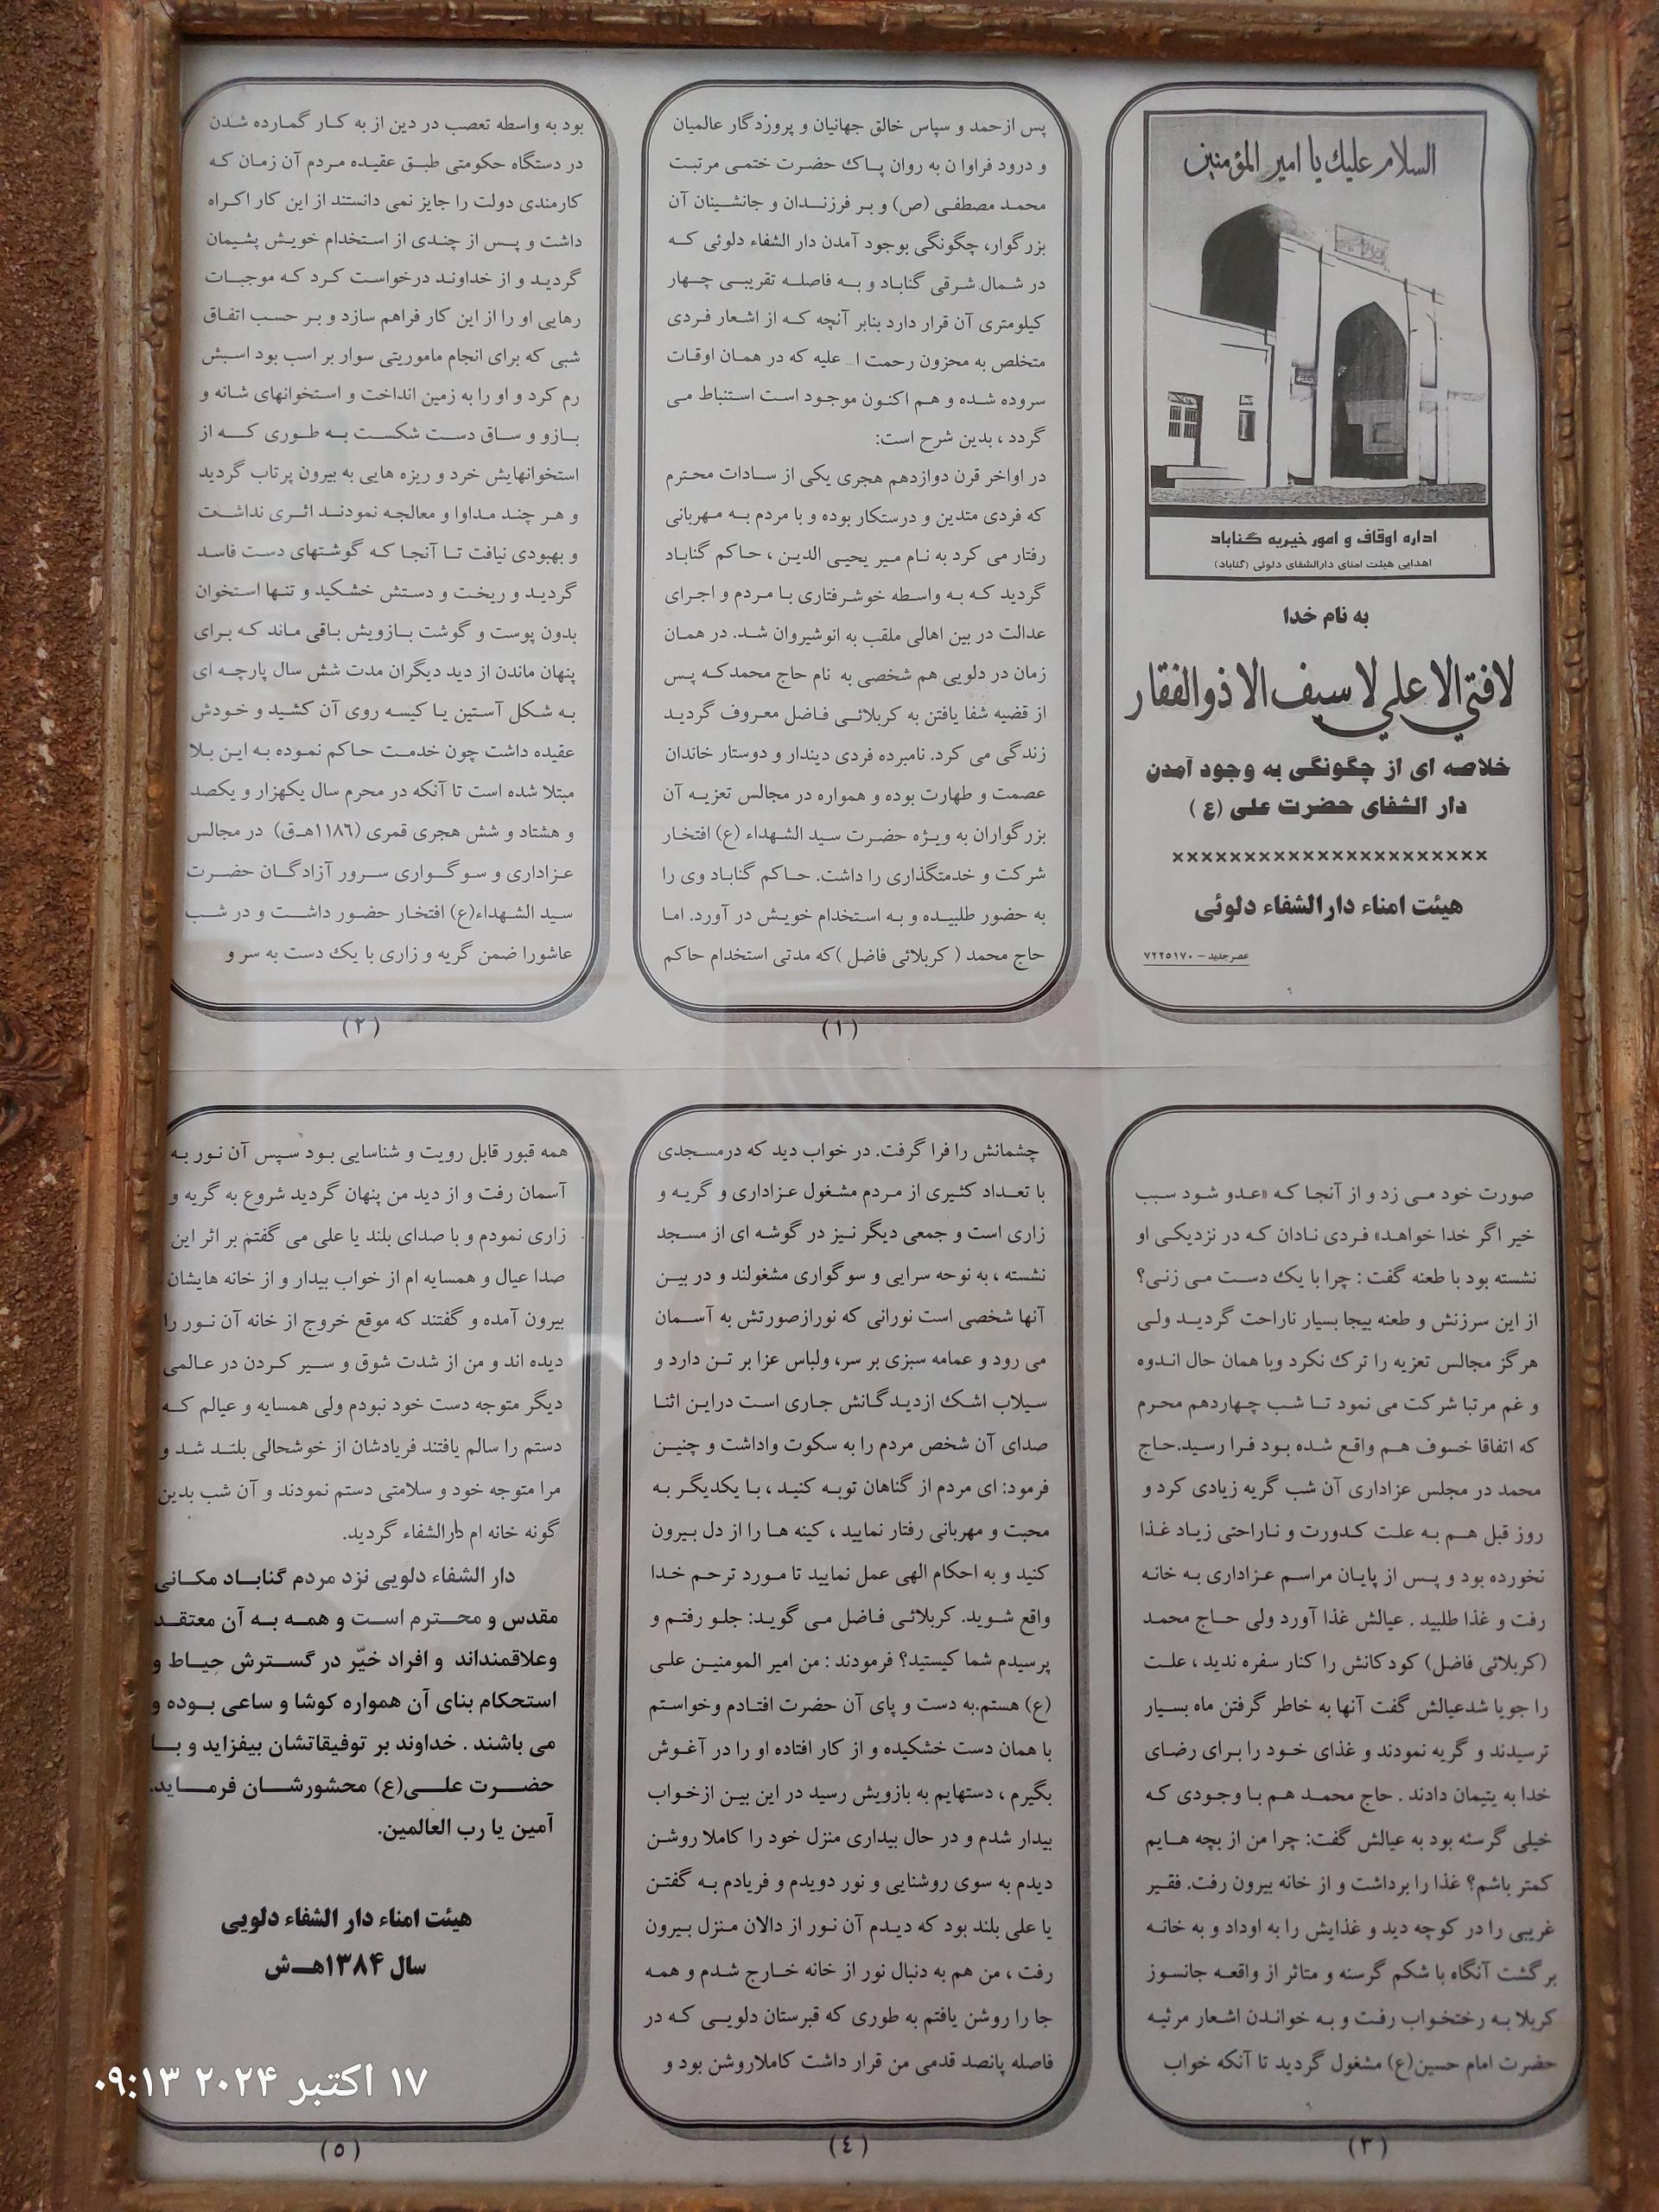 السلام علیك یا امیر المؤمنین
اداره اوقاف و امور خیریه گناباد
اهدایی هیئت امنای دارالشفای دلوئی (گناباد)
به نام خدا
لا فتی الا علی لا سیف الا ذوالفقار
خلاصه ای از چگونگی به وجود آمدن
دار الشفای حضرت علی (ع)
××××××××××××××××××××××
هیئت امناء دارالشفاء دلوئی
عصر جدید – ۷۲۲۵۱۷۰
پس ازحمد و سپاس خالق جهانیان و پروزدگار عالمیان
و درود فراوا ن به روان پاک حضرت ختمی مرتبت
محمد مصطفی (ص) و بر فرزندان و جانشینان آن
بزرگوار، چگونگی بوجود آمدن دار الشفاء دلوئی که
در شمال شرقی گناباد و به فاصله تقریبی چهار
کیلومتری آن قرار دارد بنابر آنچه که از اشعار فردی
متخلص به محزون رحمت ا... علیه که در همان اوقات
سروده شده و هم اکنون موجود است استنباط می
گردد ، بدین شرح است:
در اواخر قرن دوازدهم هجری یکی از سادات محترم
که فردی متدین و درستکار بوده و با مردم به مهربانی
رفتار می کرد به نام میر یحیی الدین ، حاکم گناباد
گردید که به واسطه خوشرفتاری با مردم و اجرای
عدالت در بین اهالی ملقب به انوشیروان شد. در همان
زمان در دلویی هم شخصی به نام حاج محمدکه پس
از قضیه شفا یافتن به کربلائی فاضل معروف گردید
زندگی می کرد. نامبرده فردی دیندار و دوستار خاندان
عصمت و طهارت بوده و همواره در مجالس تعزیه آن
بزرگواران به ویژه حضرت سید الشهداء (ع) افتخار
شرکت و خدمتگذاری را داشت. حاکم گناباد وی را
به حضور طلبیده و به استخدام خویش در آورد. اما
حاج محمد ( کربلائی فاضل )که مدتی استخدام حاکم
(۱)
بود به واسطه تعصب در دین از به کار گمارده شدن
در دستگاه حکومتی طبق عقیده مردم آن زمان که
کارمندی دولت را جایز نمی دانستند از این کار اکراه
داشت و پس از چندی از استخدام خویش پشیمان
گردید و از خداوند درخواست کرد که موجبات
رهایی او را از این کار فراهم سازد و بر حسب اتفاق
شبی که برای انجام ماموریتی سوار بر اسب بود اسبش
رم کرد و او را به زمین انداخت و استخوانهای شانه و
بازو و ساق دست شکست به طوری که از
استخوانهایش خرد و ریزه هایی به بیرون پرتاب گردید
و هر چند مداوا و معالجه نمودند اثری نداشت
و بهبودی نیافت تا آنجا که گوشتهای دست فاسد
گردید و ریخت و دستش خشکید و تنها استخوان
بدون پوست و گوشت بازویش باقی ماند که برای
پنهان ماندن از دید دیگران مدت شش سال پارچه ای
به شکل آستین یا کیسه روی آن کشید و خودش
عقیده داشت چون خدمت حاکم نموده به این بلا
مبتلا شده است تا آنکه در محرم سال یکهزار و یکصد
و هشتاد و شش هجری قمری (۱۱۸۶هـ.ق) در مجالس
عزاداری و سوگواری سرور آزادگان حضرت
سید الشهداء(ع) افتخار حضور داشت و در شب
عاشورا ضمن گریه و زاری با یک دست به سر و
(۲)
صورت خود می زد و از آنجا که «عدو شود سبب
خیر اگر خدا خواهد» فردی نادان که در نزدیکی او
نشسته بود با طعنه گفت : چرا با یک دست می زنی؟
از این سرزنش و طعنه بیجا بسیار ناراحت گردید ولی
هرگز مجالس تعزیه را ترک نکرد وبا همان حال اندوه
و غم مرتبا شرکت می نمود تا شب چهاردهم محرم
که اتفاقا خسوف هم واقع شده بود فرا رسید.حاج
محمد در مجلس عزاداری آن شب گریه زیادی کرد و
روز قبل هم به علت کدورت و ناراحتی زیاد غذا
نخورده بود و پس از پایان مراسم عزاداری به خانه
رفت و غذا طلبید . عیالش غذا آورد ولی حاج محمد
(کربلائی فاضل) کودکانش را کنار سفره ندید ، علت
را جویا شدعیالش گفت آنها به خاطر گرفتن ماه بسیار
ترسیدند و گریه نمودند و غذای خود را برای رضای
خدا به یتیمان دادند . حاج محمد هم با وجودی که
خیلی گرسنه بود به عیالش گفت: چرا من از بچه هایم
کمتر باشم؟ غذا را برداشت و از خانه بیرون رفت. فقیر
غریبی را در کوچه دید و غذایش را به اوداد و به خانه
برگشت آنگاه با شکم گرسنه و متاثر از واقعه جانسوز
کربلا به رختخواب رفت و به خواندن اشعار مرثیه
حضرت امام حسین(ع) مشغول گردید تا آنکه خواب
(۳)
چشمانش را فرا گرفت. در خواب دید که درمسجدی
با تعداد کثیری از مردم مشغول عزاداری و گریه و
زاری است و جمعی دیگر نیز در گوشه ای از مسجد
نشسته ، به نوحه سرایی و سوگواری مشغولند و در بین
آنها شخصی است نورانی که نورازصورتش به آسمان
می رود و عمامه سبزی بر سر، ولباس عزا بر تن دارد و
سیلاب اشک ازدیدگانش جاری است دراین اثنا
صدای آن شخص مردم را به سکوت واداشت و چنین
فرمود: ای مردم از گناهان توبه کنید ، با یکدیگر به
محبت و مهربانی رفتار نمایید ، کینه ها را از دل بیرون
کنید و به احکام الهی عمل نمایید تا مورد ترحم خدا
واقع شوید. کربلائی فاضل می گوید: جلو رفتم و
پرسیدم شما کیستید؟ فرمودند : من امیر المومنین علی
(ع) هستم.به دست و پای آن حضرت افتادم وخواستم
با همان دست خشکیده و از کار افتاده او را در آغوش
بگیرم ، دستهایم به بازویش رسید در این بین ازخواب
بیدار شدم و در حال بیداری منزل خود را کاملا روشن
دیدم به سوی روشنایی و نور دویدم و فریادم به گفتن
یا علی بلند بود که دیدم آن نور از دالان منزل بیرون
رفت ، من هم به دنبال نور از خانه خارج شدم و همه
جا را روشن یافتم به طوری که قبرستان دلویی که در
فاصله پانصد قدمی من قرار داشت کاملاروشن بود و
(٤)
همه قبور قابل رویت و شناسایی بود سپس آن نور به
آسمان رفت و از دید من پنهان گردید شروع به گریه و
زاری نمودم و با صدای بلند یا علی می گفتم بر اثر این
صدا عیال و همسایه ام از خواب بیدار و از خانه هایشان
بیرون آمده و گفتند که موقع خروج از خانه آن نور را
دیده اند و من از شدت شوق و سیر کردن در عالمی
دیگر متوجه دست خود نبودم ولی همسایه و عیالم که
دستم را سالم یافتند فریادشان از خوشحالی بلند شد و
مرا متوجه خود و سلامتی دستم نمودند و آن شب بدین
گونه خانه ام دارالشفاء گردید.
دار الشفاء دلویی نزد مردم گناباد مکانی
مقدس و محترم است و همه به آن معتقد
وعلاقمنداند و افراد خیّر در گسترش حیاط و
استحکام بنای آن همواره کوشا و ساعی بوده و
می باشند . خداوند بر توفیقاتشان بیفزاید و با
حضرت علی(ع) محشورشان فرماید.
آمین یا رب العالمین.
هیئت امناء دار الشفاء دلویی
سال ۱۳۸۴هـ ش
(۵)
۱۷ اکتبر ۲۰۲۴ ۰۹:۱۳